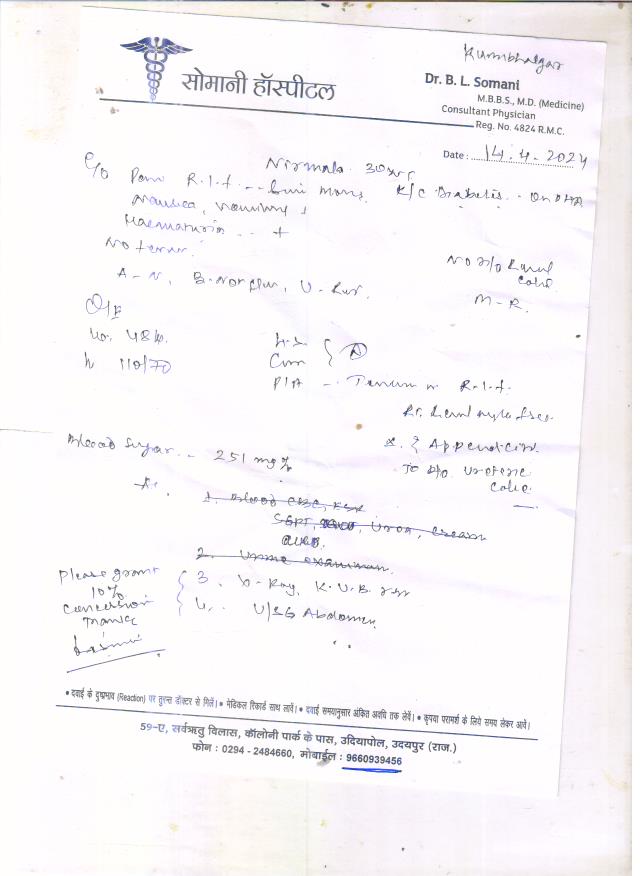 Kumbhalgar
सोमानी हॉस्पीटल
Dr. B. L. Somani
M.B.B.S., M.D. (Medicine)
Consultant Physician
Reg. No. 4824 R.M.C.
Date : 14.4.2024
Nirmala 30yr
C/o Pain R.I.F. K/C Diabetes - On OHA
Nausea, Vomiting +
Haematuria - +
No fever.
No H/o Renal Colic
A - N, B. Nor
M - R.
O/E
48
110/70
P/A - R.I.F.
Rt. Renal free
Blood Sugar - 251 mg%
? Appendicitis
To R/o Ureteric Colic
1. Blood CBC, ESR
SGPT, Urea, Creat
2. Urine examination
Please grant 10% concession Thanks
3. X-Ray K.U.B.
4. U/SG Abdomen
• दवाई के दुष्प्रभाव (Reaction) पर तुरन्त डॉक्टर से मिलें। • मेडिकल रिकार्ड साथ लावें। • दवाई समयानुसार अंकित अवधि तक लेवें। • कृपया परामर्श के लिये समय लेकर आवें।
59-ए, सर्वऋतु विलास, कॉलोनी पार्क के पास, उदियापोल, उदयपुर (राज.)
फोन : 0294 - 2484660, मोबाईल : 9660939456